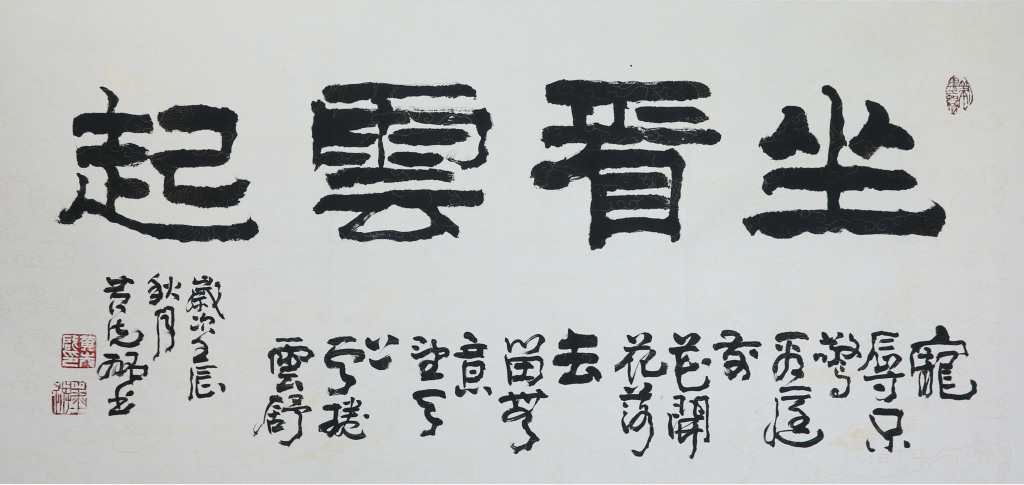 坐看雲起
寵
辱不
驚
看庭
前
花開
花落
去
留無
意
望天
上
云捲
雲舒
歲次壬辰
秋月
黃先書